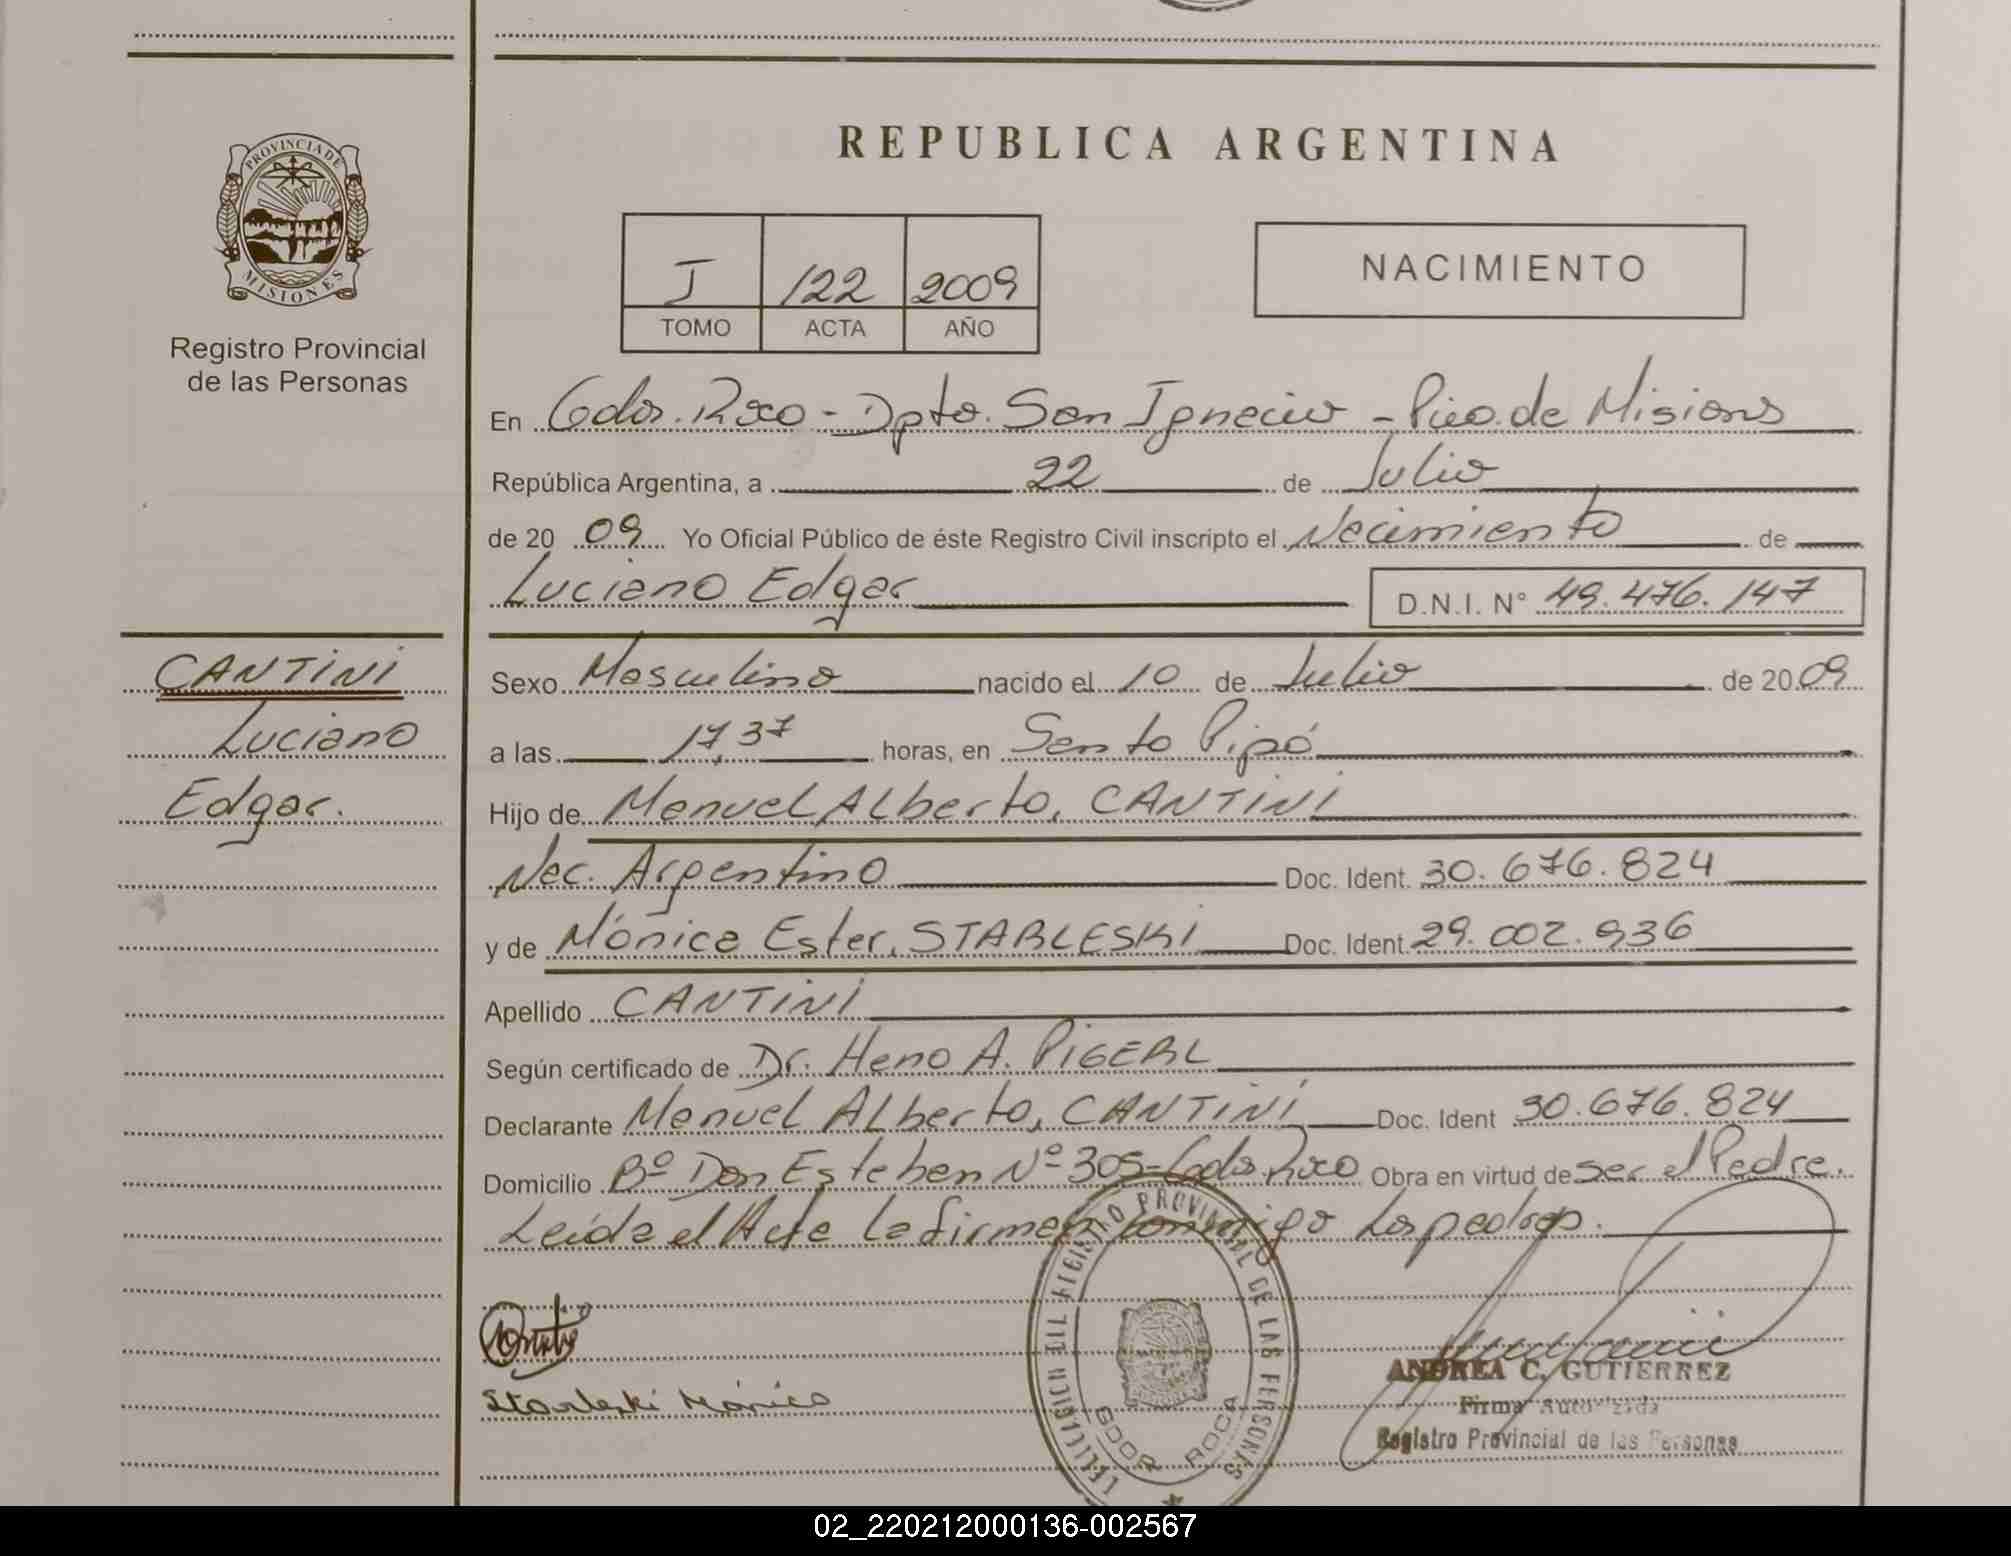 REPUBLICA ARGENTINA
PROVINCIA DE
MISIONES
Registro Provincial
de las Personas
J 122 2009
TOMO ACTA AÑO
NACIMIENTO
En Gdor. Roca - Dpto. San Ignacio - Pica. de Misiones
República Argentina, a 22 de Julio
de 20 09 Yo Oficial Público de éste Registro Civil inscripto el Nacimiento de
Luciano Edgar D.N.I. N° 49.476.147
CANTINI
Luciano
Edgar.
Sexo Masculino nacido el 10 de Julio de 20 09
a las 17,37 horas, en Santo Pipó
Hijo de Manuel Alberto, CANTINI
Nac. Argentino Doc. Ident. 30.676.824
y de Mónica Ester, STARLESKI Doc. Ident. 29.002.936
Apellido CANTINI
Según certificado de Dr. Heno A. PIGERL
Declarante Manuel Alberto, CANTINI Doc. Ident 30.676.824
Domicilio Bº Don Esteban Nº 305 - Gdor. Roca Obra en virtud de ser el Padre.
Leída el Acta la firman conmigo los padres.
Starleski Mónica
REGISTRO PROVINCIAL DE LAS PERSONAS
GDOR ROCA
ANDREA C. GUTIERREZ
Firma Autorizada
Registro Provincial de las Personas
02_220212000136-002567